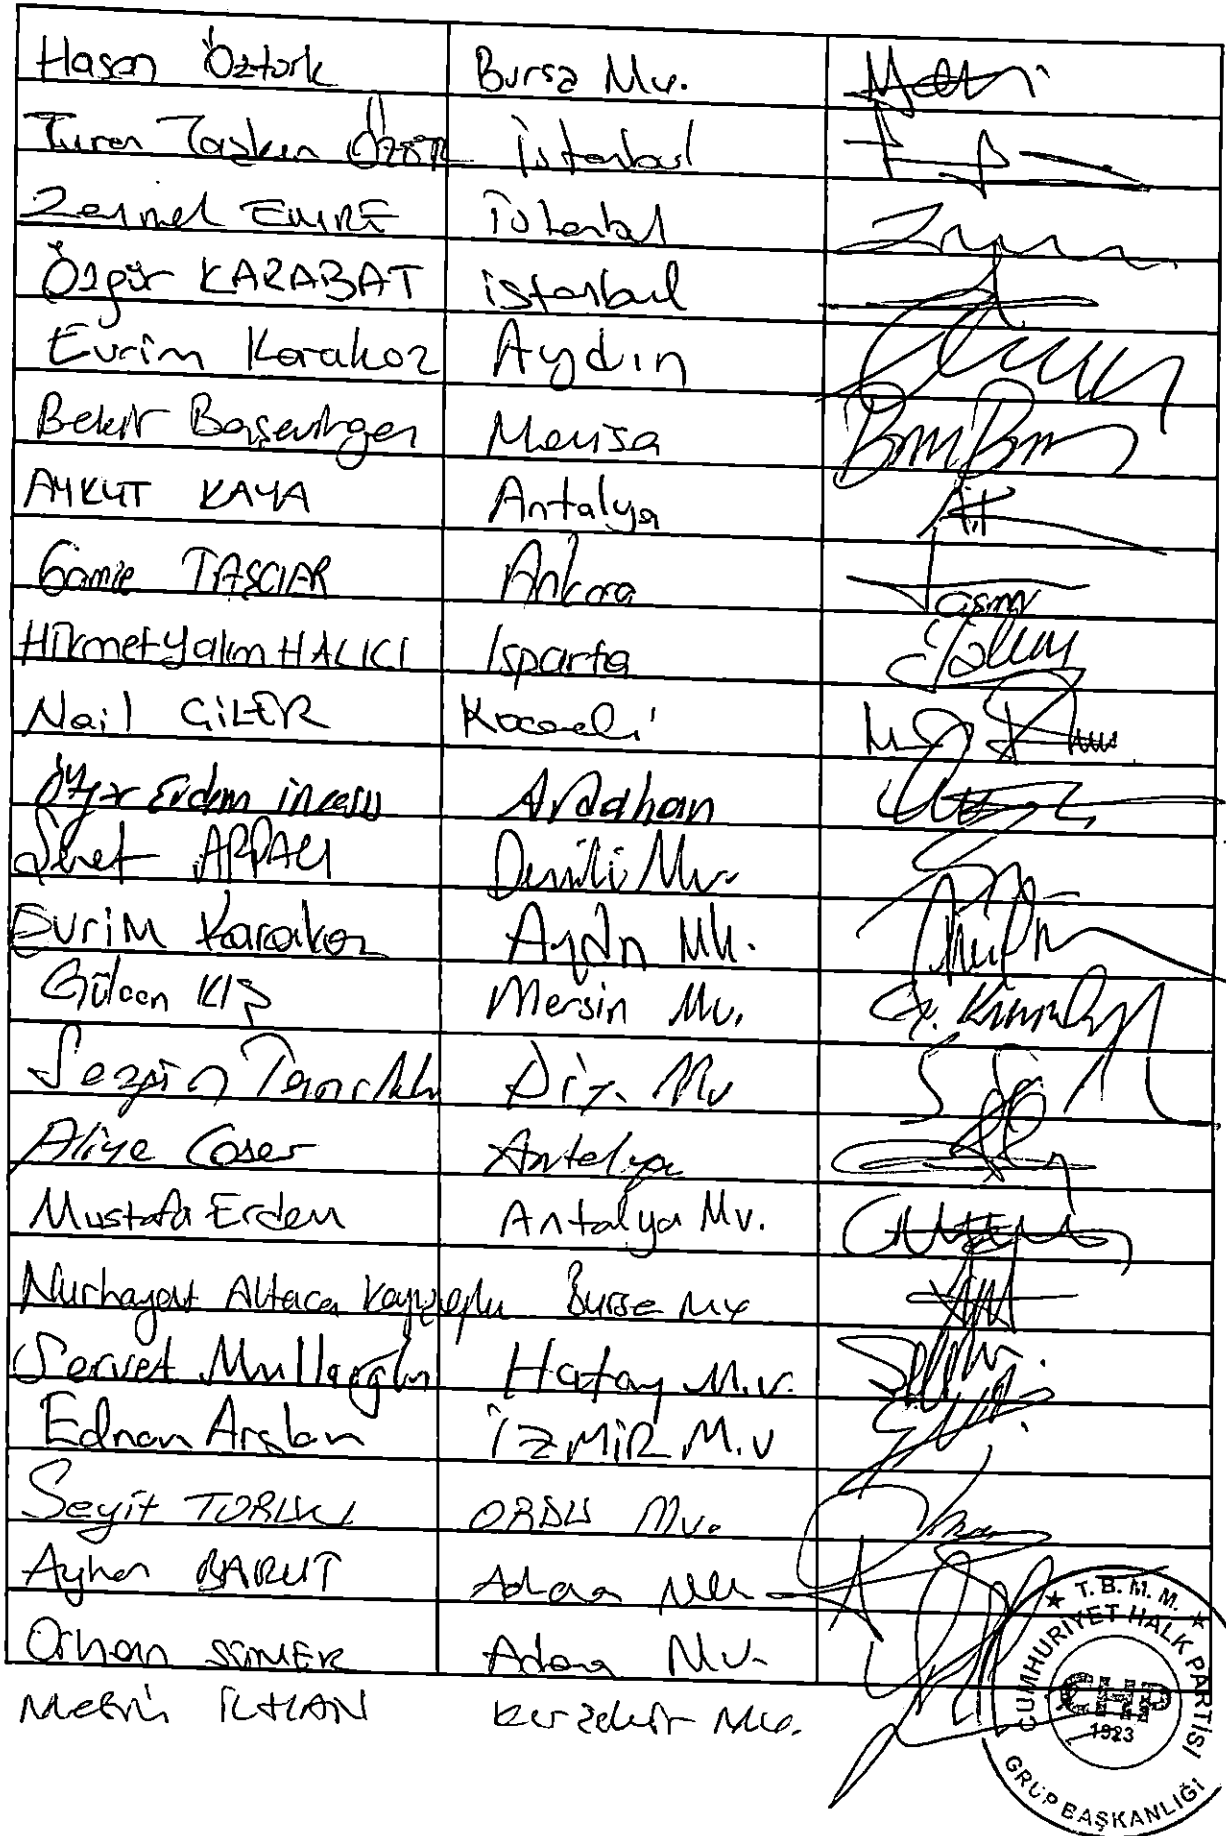 Hasan Öztürk Bursa Mv.
Turan Taşkın Özer İstanbul
Zeynel EMRE İstanbul
Özgür KARABAT istanbul
Evrim Karakoz Aydın
Bekir Başevirgen Manisa
AYKUT KAYA Antalya
Gamze TAŞCIER Ankara
Hikmet Yalım HALICI Isparta
Nail ÇİLER Kocaeli
Özgür Erdem incesu Ardahan
Şeref ARPACI Denizli Mv.
Evrim Karakoz Aydın Mv.
Gülcan KIŞ Mersin Mv.
Sezgin Tanrıkulu Diy. Mv
Aliye Coşar Antalya
Mustafa Erdem Antalya Mv.
Nurhayat Altaca Kayışoğlu Bursa Mv
Servet Mullaoğlu Hatay M.v.
Ednan Arslan İZMİR M.V
Seyit TORUN ORDU Mv.
Ayhan BARUT Adana Mv.
Orhan SÜMER Adana Mv.
Metin İLHAN Kırşehir Mv.
★ T. B. M. M. ★
CUMHURİYET HALK PARTİSİ
CHP
1923
GRUP BAŞKANLIĞI